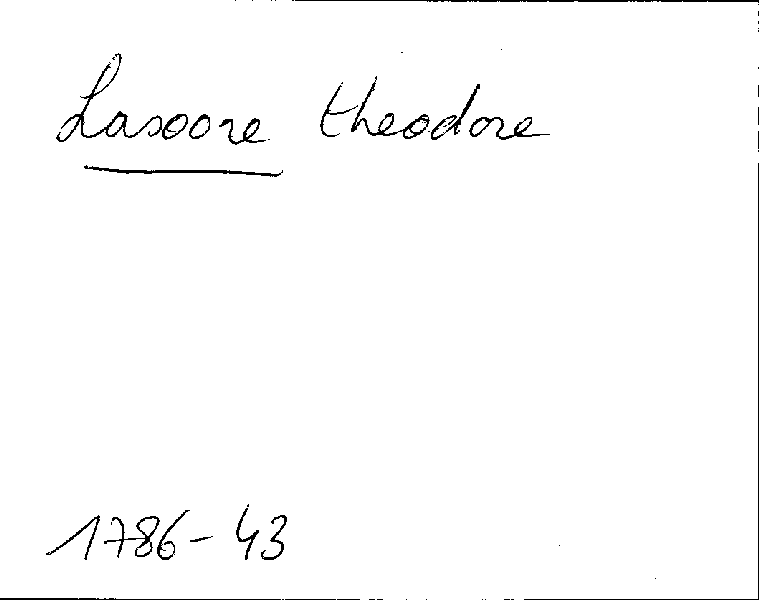 Lasoore theodore
1786-43